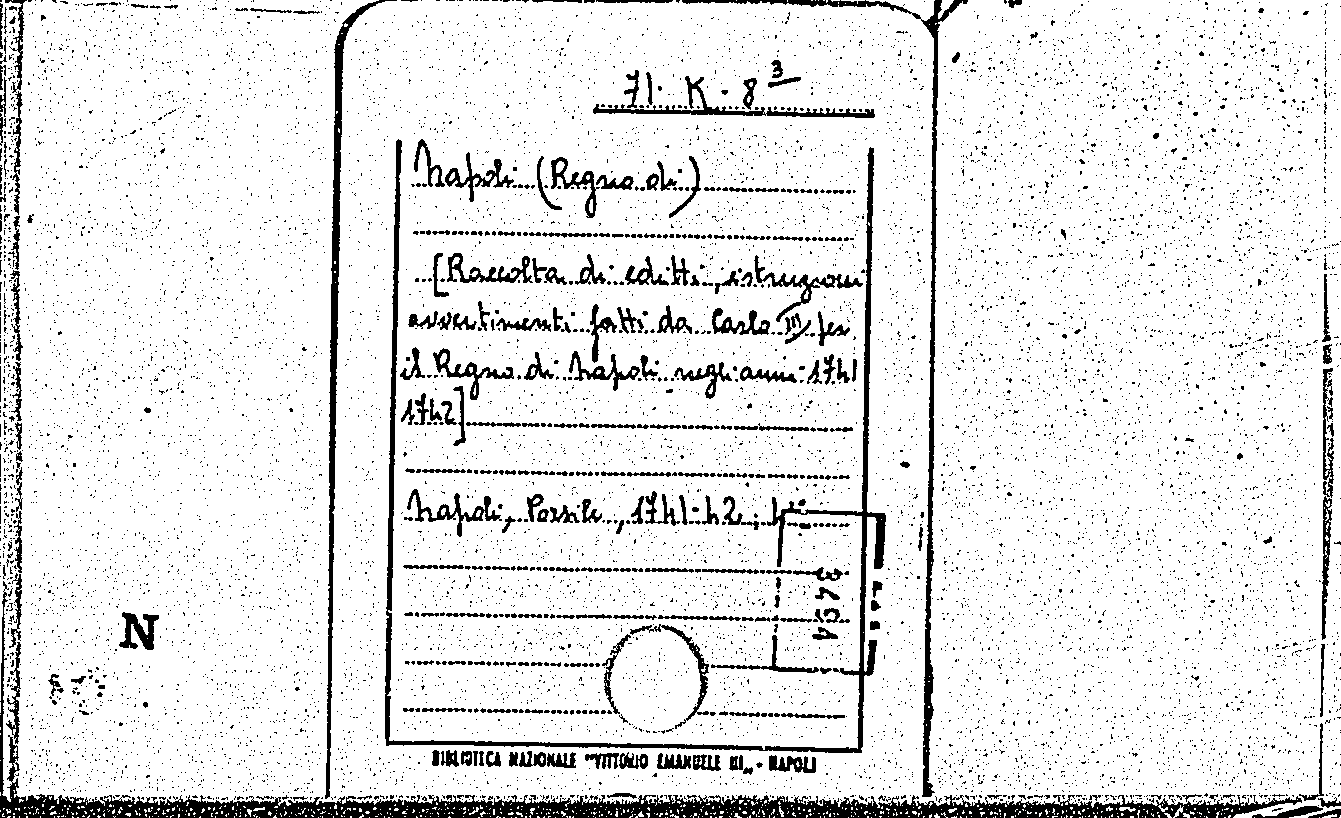 71. K. 8 3
Napoli (Regno di)
[Raccolta di editti, istruzioni
avvertimenti fatti da Carlo III per
il Regno di Napoli negli anni 1741
1742]
Napoli, Porsile, 1741-42; 4°
3494
N
BIBLIOTECA NAZIONALE "VITTORIO EMANUELE III„ - NAPOLI